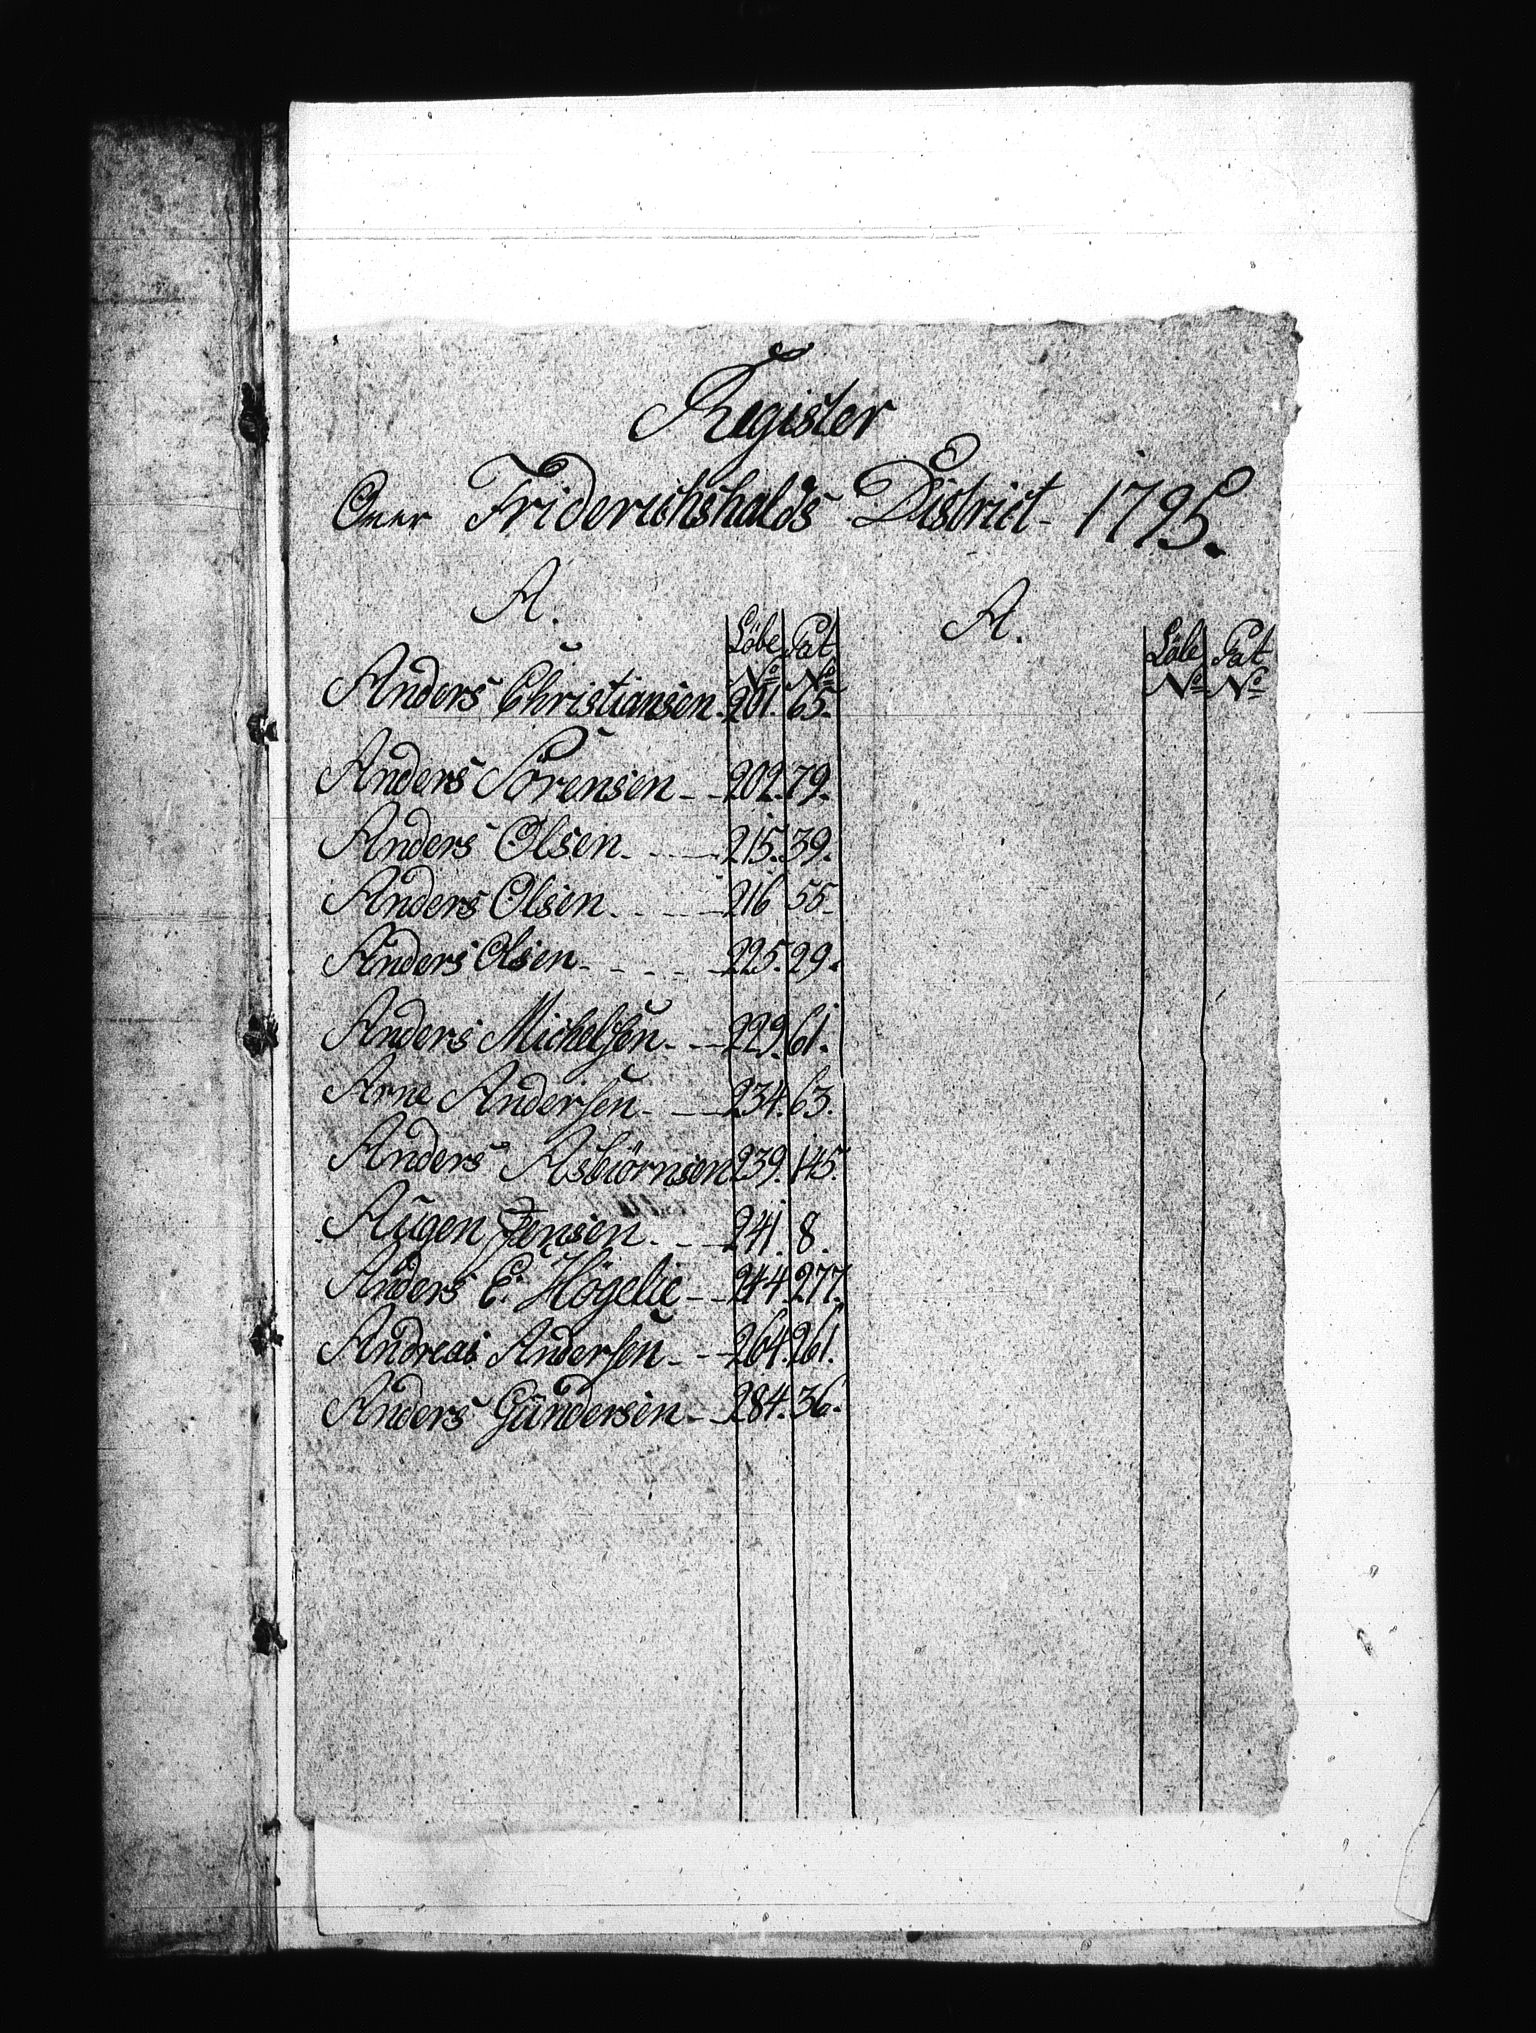 Register
Over Friderichshalds District 1795.
A.
Löbe No Pat No
Anders Christiansen 201. 65.
Anders Sörensen 202. 79.
Anders Olsen 215. 39.
Anders Olsen 216 55.
Anders Olsen 225. 29.
Anders Michelsen 229. 61.
Arne Andersen 234. 63.
Anders Asbiörnsen 239. 145.
Augen Jensen 241. 8.
Anders E: Högelie 244. 277.
Andreas Andersen 264. 261.
Anders Gundersen 284. 36.
A.
Löbe No Pat No